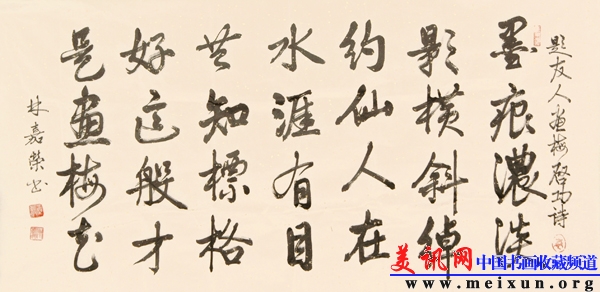 題友人畫梅啓功詩
墨痕濃淡
影橫斜綽
約仙人在
水涯有目
共知標格
好這般才
是畫梅花
林嘉榮書
美讯网 中国书画收藏频道
www.meixun.org